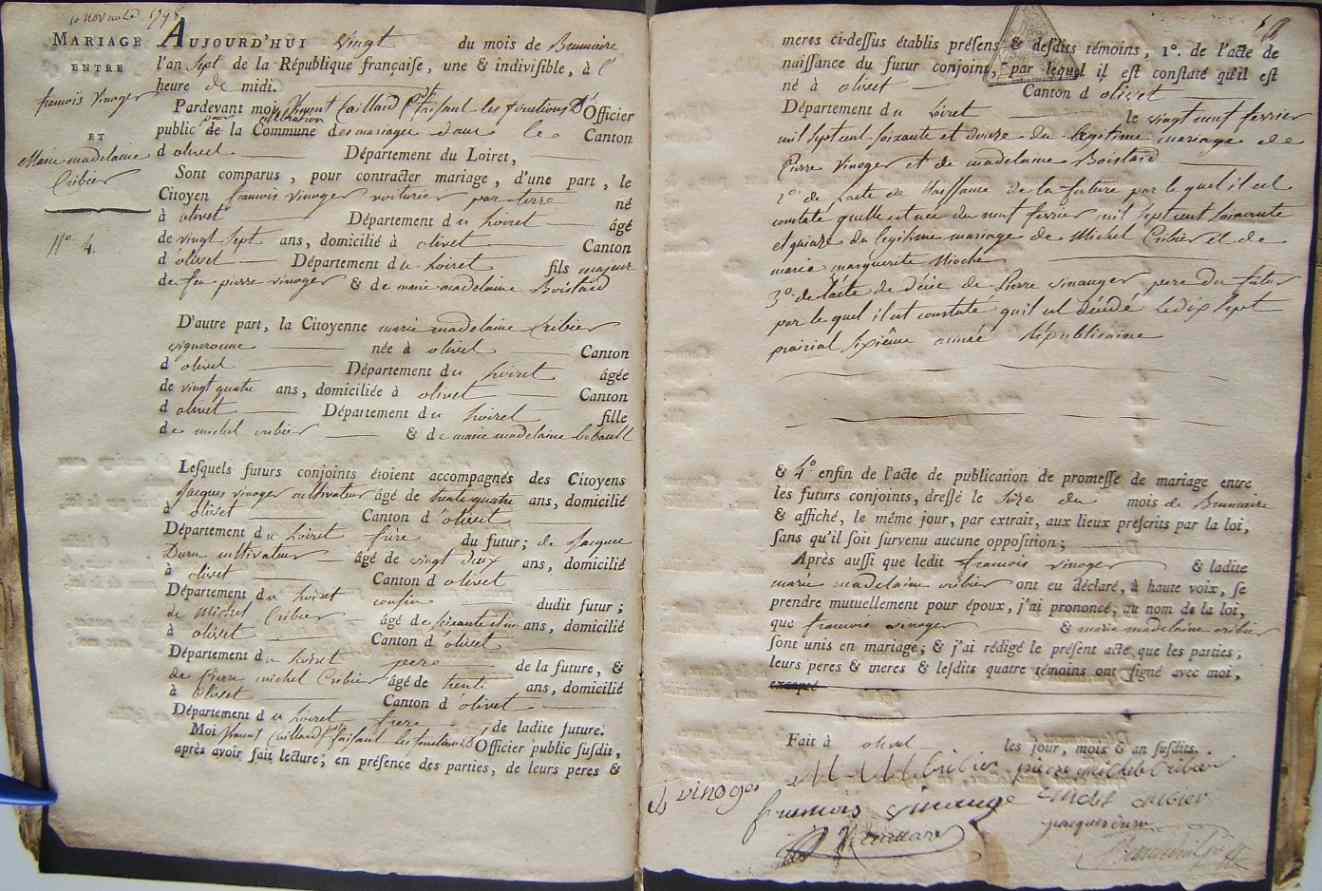 10 novembre 1798
MARIAGE
ENTRE
françois Vinoger
ET
Marie madelaine
Cribier
N.o 4.
AUJOURD'HUI vingt du mois de Brumaire
l'an sept de la République françaiſe, une & indiviſible, à l'
heure de midi.
Pardevant moi Caillard faiſant les fonctions d'Officier
public pour celebration de la Commune des mariages dans le Canton
d'olivet Département du Loiret,
Sont comparus, pour contracter mariage, d'une part, le
Citoyen françois vinoger voiturier par terre né
à olivet Département du Loiret âgé
de vingt sept ans, domicilié à olivet Canton
d olivet Département du Loiret fils majeur
de feu pierre vinoger & de marie madelaine Boistard
D'autre part, la Citoyenne marie madelaine Cribier
vigneronne née à olivet Canton
d'olivet Département du Loiret âgée
de vingt quatre ans, domiciliée à olivet Canton
d olivet Département du Loiret fille
de michel cribier & de marie madelaine
Leſquels futurs conjoints étoient accompagnés des Citoyens
Jacques vinoger cultivateur âgé de trente quatre ans, domicilié
à olivet Canton d'olivet
Département du Loiret frere du futur; de Jacques
Duru cultivateur âgé de vingt deux ans, domicilié
à olivet Canton d olivet
Département du Loiret cousin dudit futur;
de Michel Cribier âgé de soixante et un ans, domicilié
à olivet Canton d'olivet
Département du Loiret pere de la future, &
de Pierre michel Cribier âgé de trente ans, domicilié
à olivet Canton d'olivet
Département du Loiret frere de ladite future.
Moi Caillard faiſant les fonctions d'Officier public ſuſdit,
après avoir fait lecture; en préſence des parties, de leurs peres &
meres ci-deſſus établis préſens & deſdits témoins, 1°. de l'acte de
naiſſance du futur conjoint, par lequel il eſt conſtaté qu'il eſt
né à olivet Canton d olivet
Département du Loiret le vingt neuf fevrier
mil sept cent soixante et douze du legitime mariage de
Pierre Vinoger et de madelaine Boistard
2° de l'acte de Naissance de la future par le quel il est
constate quelle est née du neuf fevrier mil sept cent soixante
et quinze du legitime mariage de Michel Cribier et de
marie marguerite Mioche
3° de l'acte de décie de Pierre vinauger pere du futur
par le quel il est constaté qu'il est décédé le dix sept
prairial sixiême année Républicaine
& 4° enfin de l'acte de publication de promeſſe de mariage entre
les futurs conjoints, dreſſé le size du mois de Brumaire
& affiché, le même jour, par extrait, aux lieux préſcrits par la loi,
ſans qu'il ſoit ſurvenu aucune oppoſition;
Après auſſi que ledit françois vinoger & ladite
marie madelaine cribier ont eu déclaré, à haute voix, ſe
prendre mutuellement pour époux, j'ai prononcé, au nom de la loi,
que françois vinoger & marie madelaine cribier
ſont unis en mariage; & j'ai rédigé le préſent acte que les parties,
leurs peres & meres & leſdits quatre témoins ont ſigné avec moi,
excepté
Fait à olivet les jour, mois & an ſuſdits.
Cribier pierre michel Cribier
J vinoger
francois Vinauge michel cribier
jacques duru